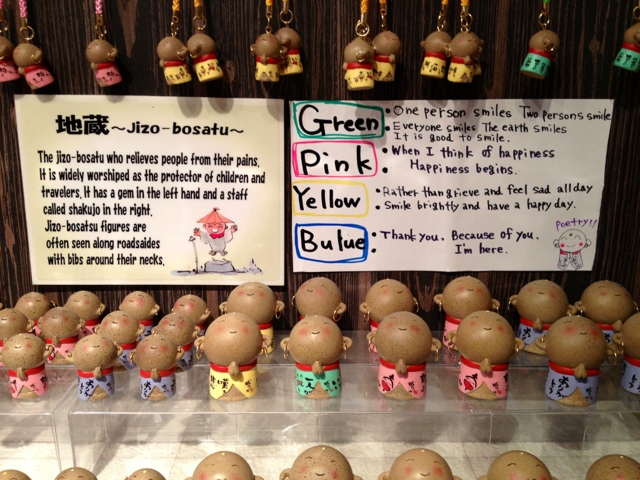 地蔵 ~Jizo-bosatu~
The jizo-bosatu who relieves people from their pains.
It is widely worshiped as the protector of children and
travelers. It has a gem in the left hand and a staff
called shakujo in the right.
Jizo-bosatsu figures are
often seen along roadsaides
with bibs around their necks.
Green
• One person smiles Two persons smile
• Everyone smiles The earth smiles
It is good to smile.
Pink
• When I think of happiness
• Happiness begins.
Yellow
• Rather than grieve and feel sad all day
• Smile brightly and have a happy day.
Bulue
• Thank you. Because of you.
• I'm here.
Poetry!!